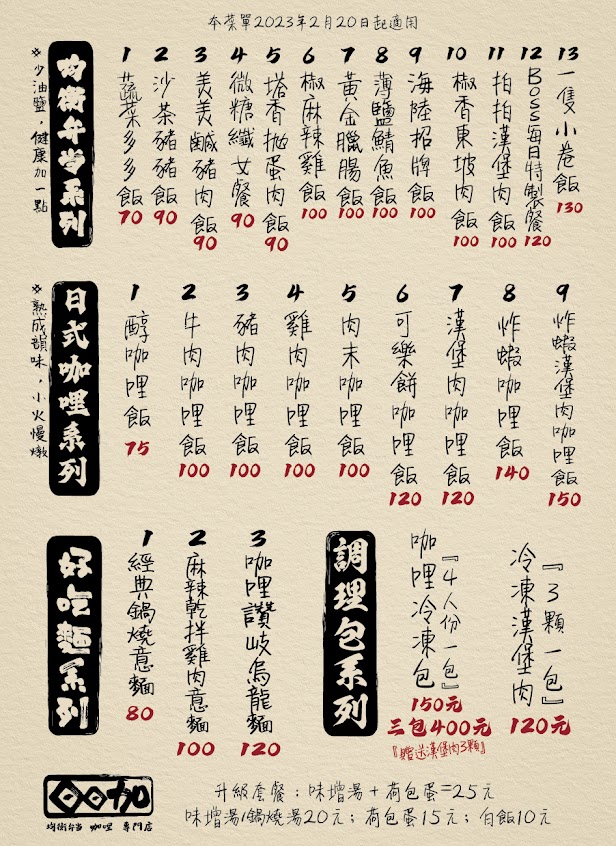 本菜單2023年2月20日起適用
均衡弁当系列
※少油鹽，健康加一點
1 蔬菜多多飯 70
2 沙茶豬豬飯 90
3 美美鹹豬肉飯 90
4 微糖纖女餐 90
5 塔香拋蛋肉飯 90
6 椒麻辣雞飯 100
7 黃金臘腸飯 100
8 薄鹽鯖魚飯 100
9 海陸招牌飯 100
10 椒香東坡肉飯 100
11 拍拍漢堡肉飯 100
12 BOSS每日特製餐 120
13 一隻小卷飯 130
日式咖哩系列
※熟成韻味，小火慢燉
1 醇咖哩飯 75
2 牛肉咖哩飯 100
3 豬肉咖哩飯 100
4 雞肉咖哩飯 100
5 肉末咖哩飯 100
6 可樂餅咖哩飯 120
7 漢堡肉咖哩飯 120
8 炸蝦咖哩飯 140
9 炸蝦漢堡肉咖哩飯 150
好吃麵系列
1 經典鍋燒意麵 80
2 麻辣乾拌雞肉意麵 100
3 咖哩讚岐烏龍麵 120
調理包系列
咖哩冷凍包
『4人份一包』
150元
三包400元
『贈送漢堡肉3顆』
冷凍漢堡肉
『3顆一包』
120元
均衡弁当 咖哩 專門店
升級套餐：味增湯+荷包蛋=25元
味增湯/鍋燒湯20元；荷包蛋15元；白飯10元